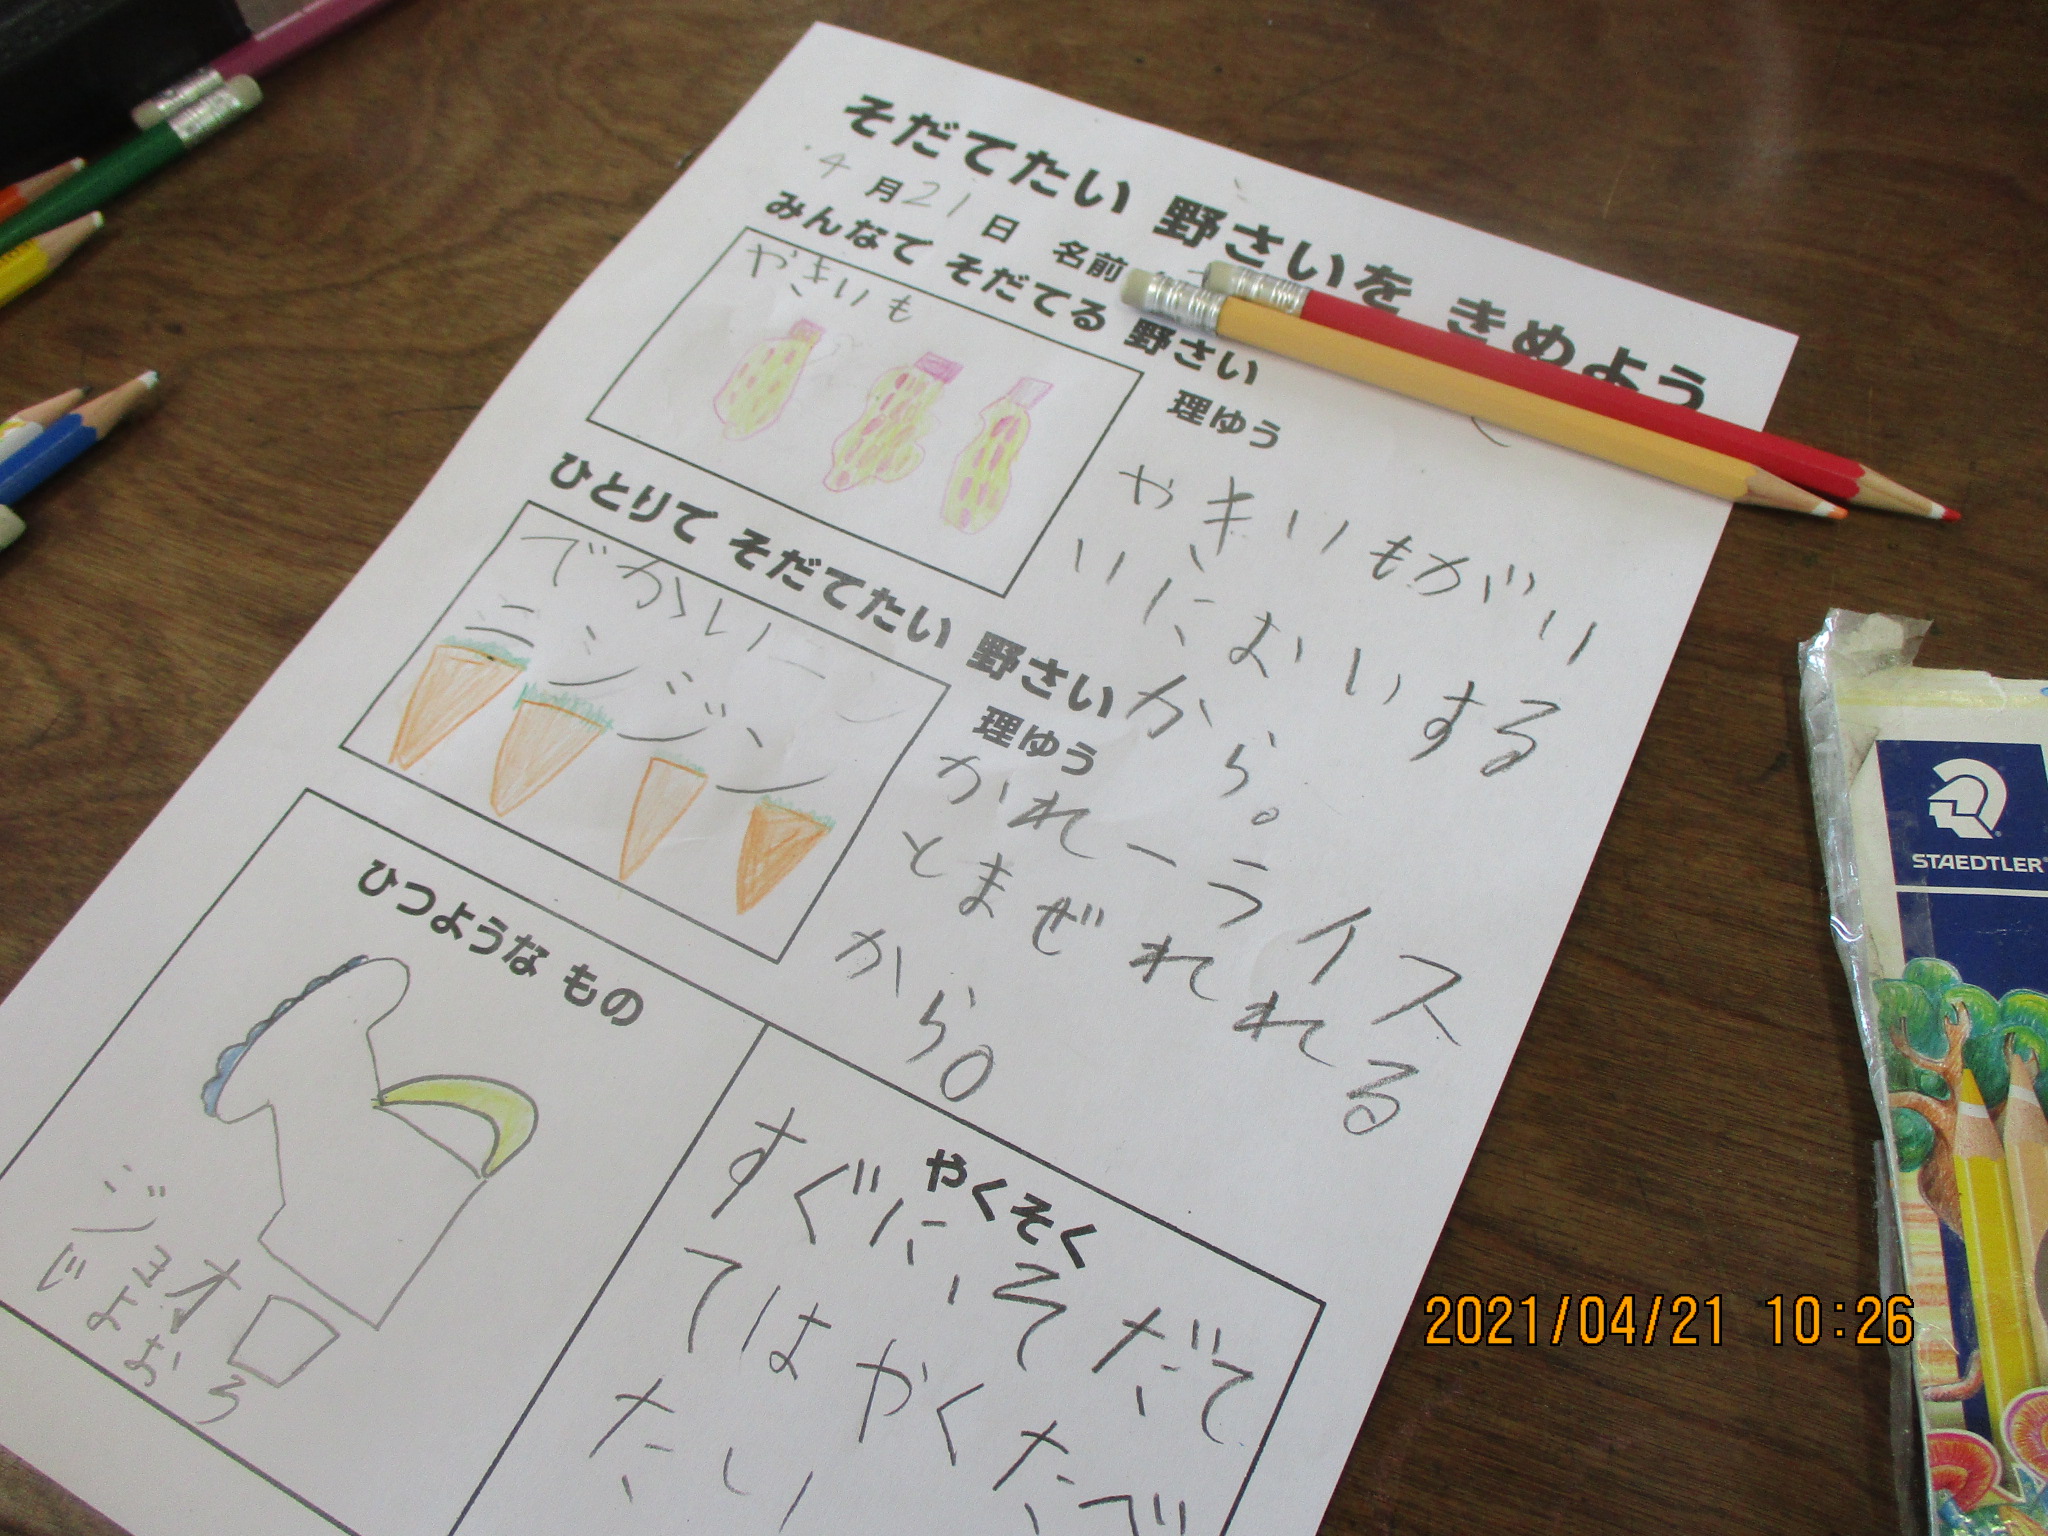 そだてたい 野さいを きめよう
4月21日 名前
みんなで そだてる 野さい
やきいも
理ゆう
やきいもがい
いにおいする
から。
ひとりで そだてたい 野さい
でかいニン
ニンジン
理ゆう
かれーライス
とまぜれれる
から。
ひつような もの
ジョオロ
じょおろ
やくそく
すぐにそだて
てはやくたべ
たい
STAEDTLER
2021/04/21 10:26